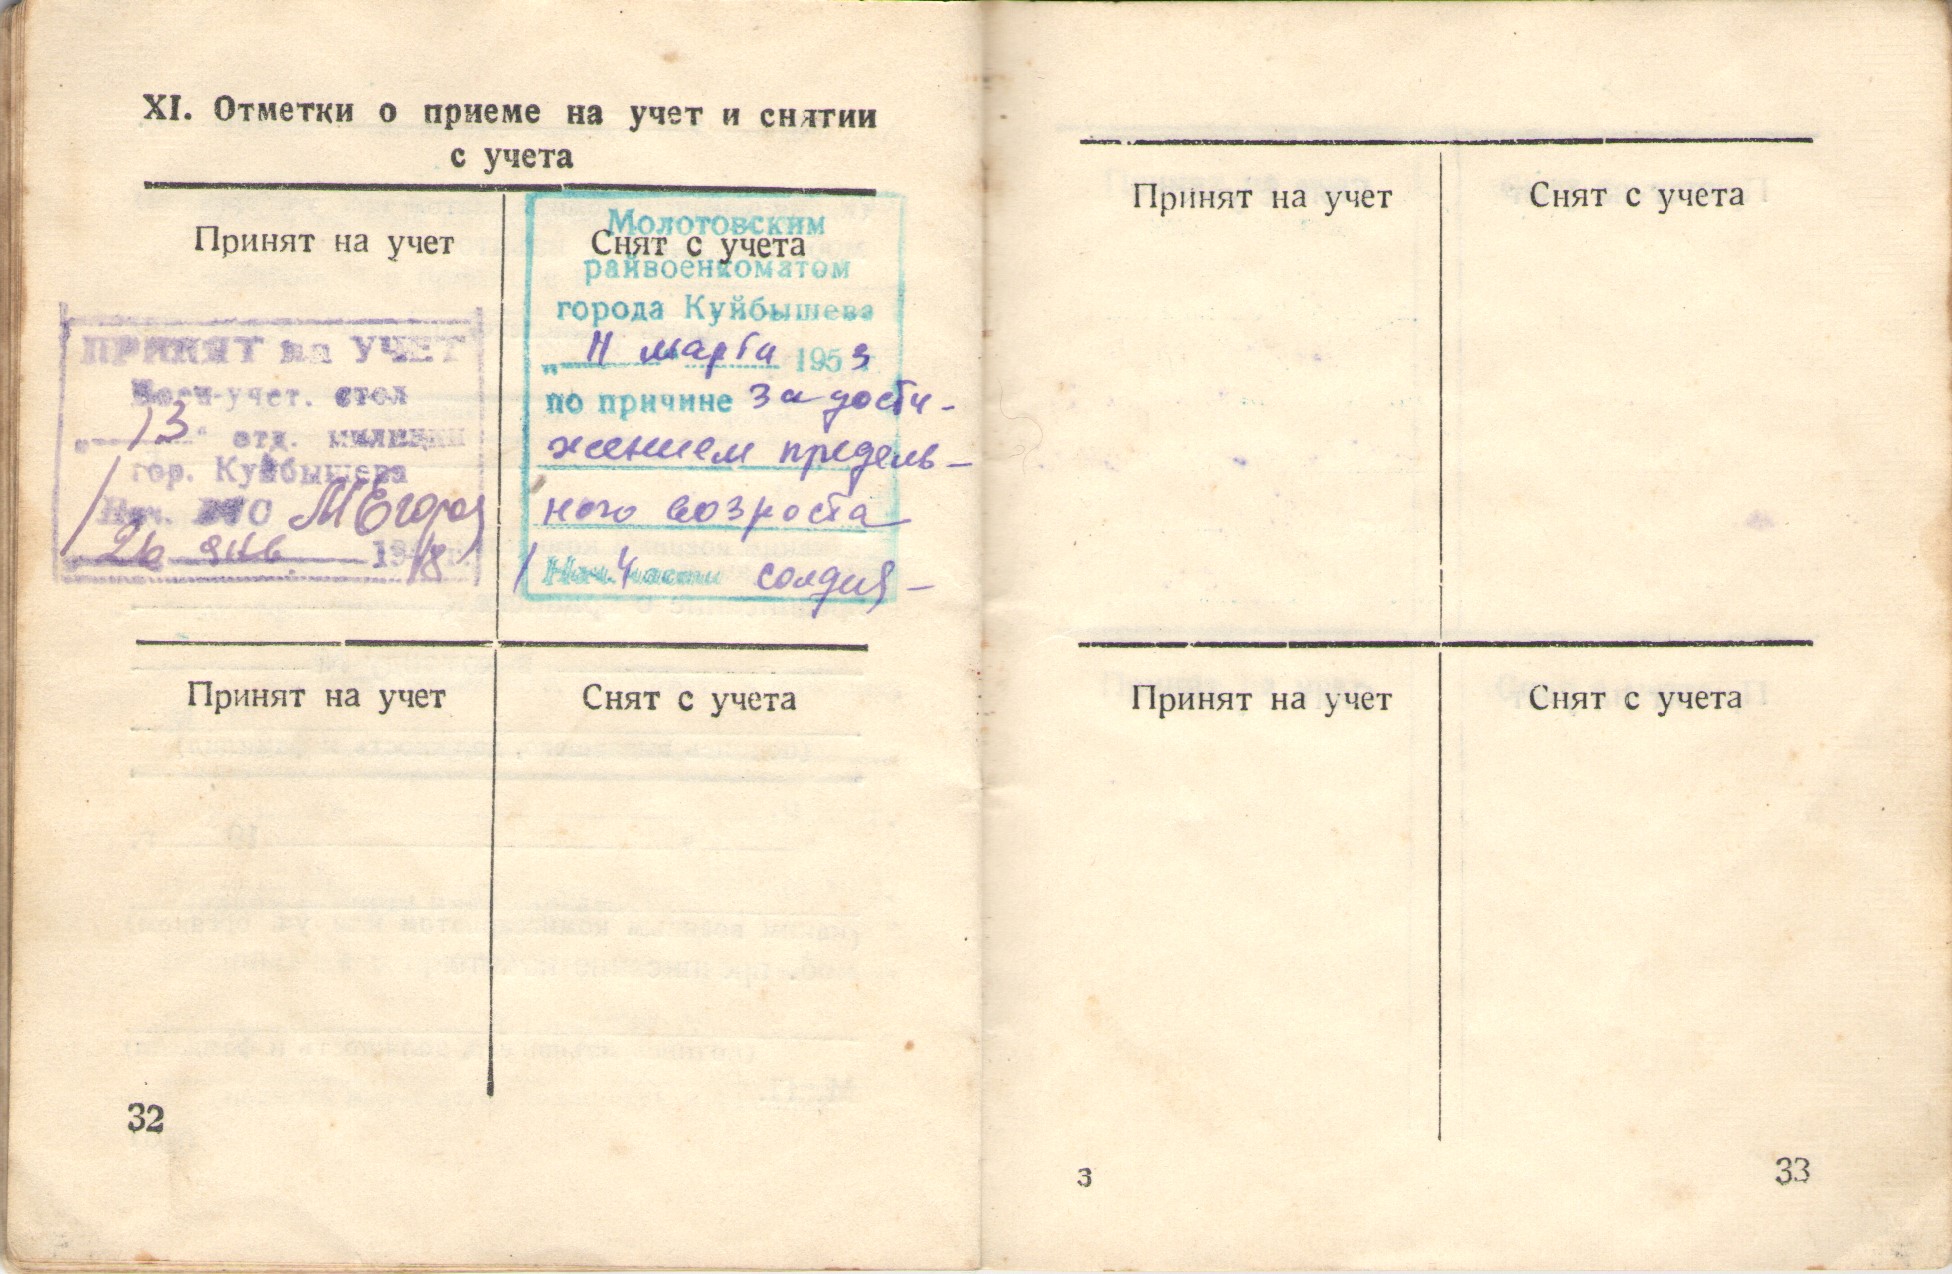 XI. Отметки о приеме на учет и снятии
с учета
Принят на учет
ПРИНЯТ на УЧЕТ
Воен-учет. стол
„ 13 “ отд. милиции
гор. Куйбышева
Нач. ВУС МЕгоров
26 янв 1948 г.
Снят с учета
Молотовским
райвоенкоматом
города Куйбышева
„ 11 марта 1953 г.
по причине За дости-
жением предель-
ного возроста
Нач. 4 части
Принят на учет
Снят с учета
32
Принят на учет
Снят с учета
Принят на учет
Снят с учета
3
33